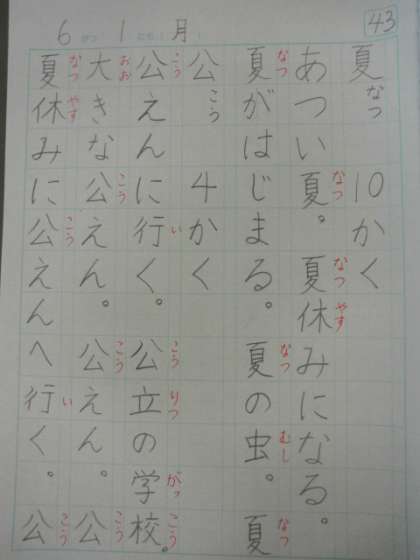 43
6がつ1にち(月)
夏なつ 10かく
あつい夏なつ。夏なつ休やすみになる。
夏なつがはじまる。夏なつの虫むし。夏なつ
公こう 4かく
公こうえんに行いく。公こう立りつの学がっ校こう。
大おおきな公こうえん。公こうえん。公こう
夏なつ休やすみに公こうえんへ行いく。公こう